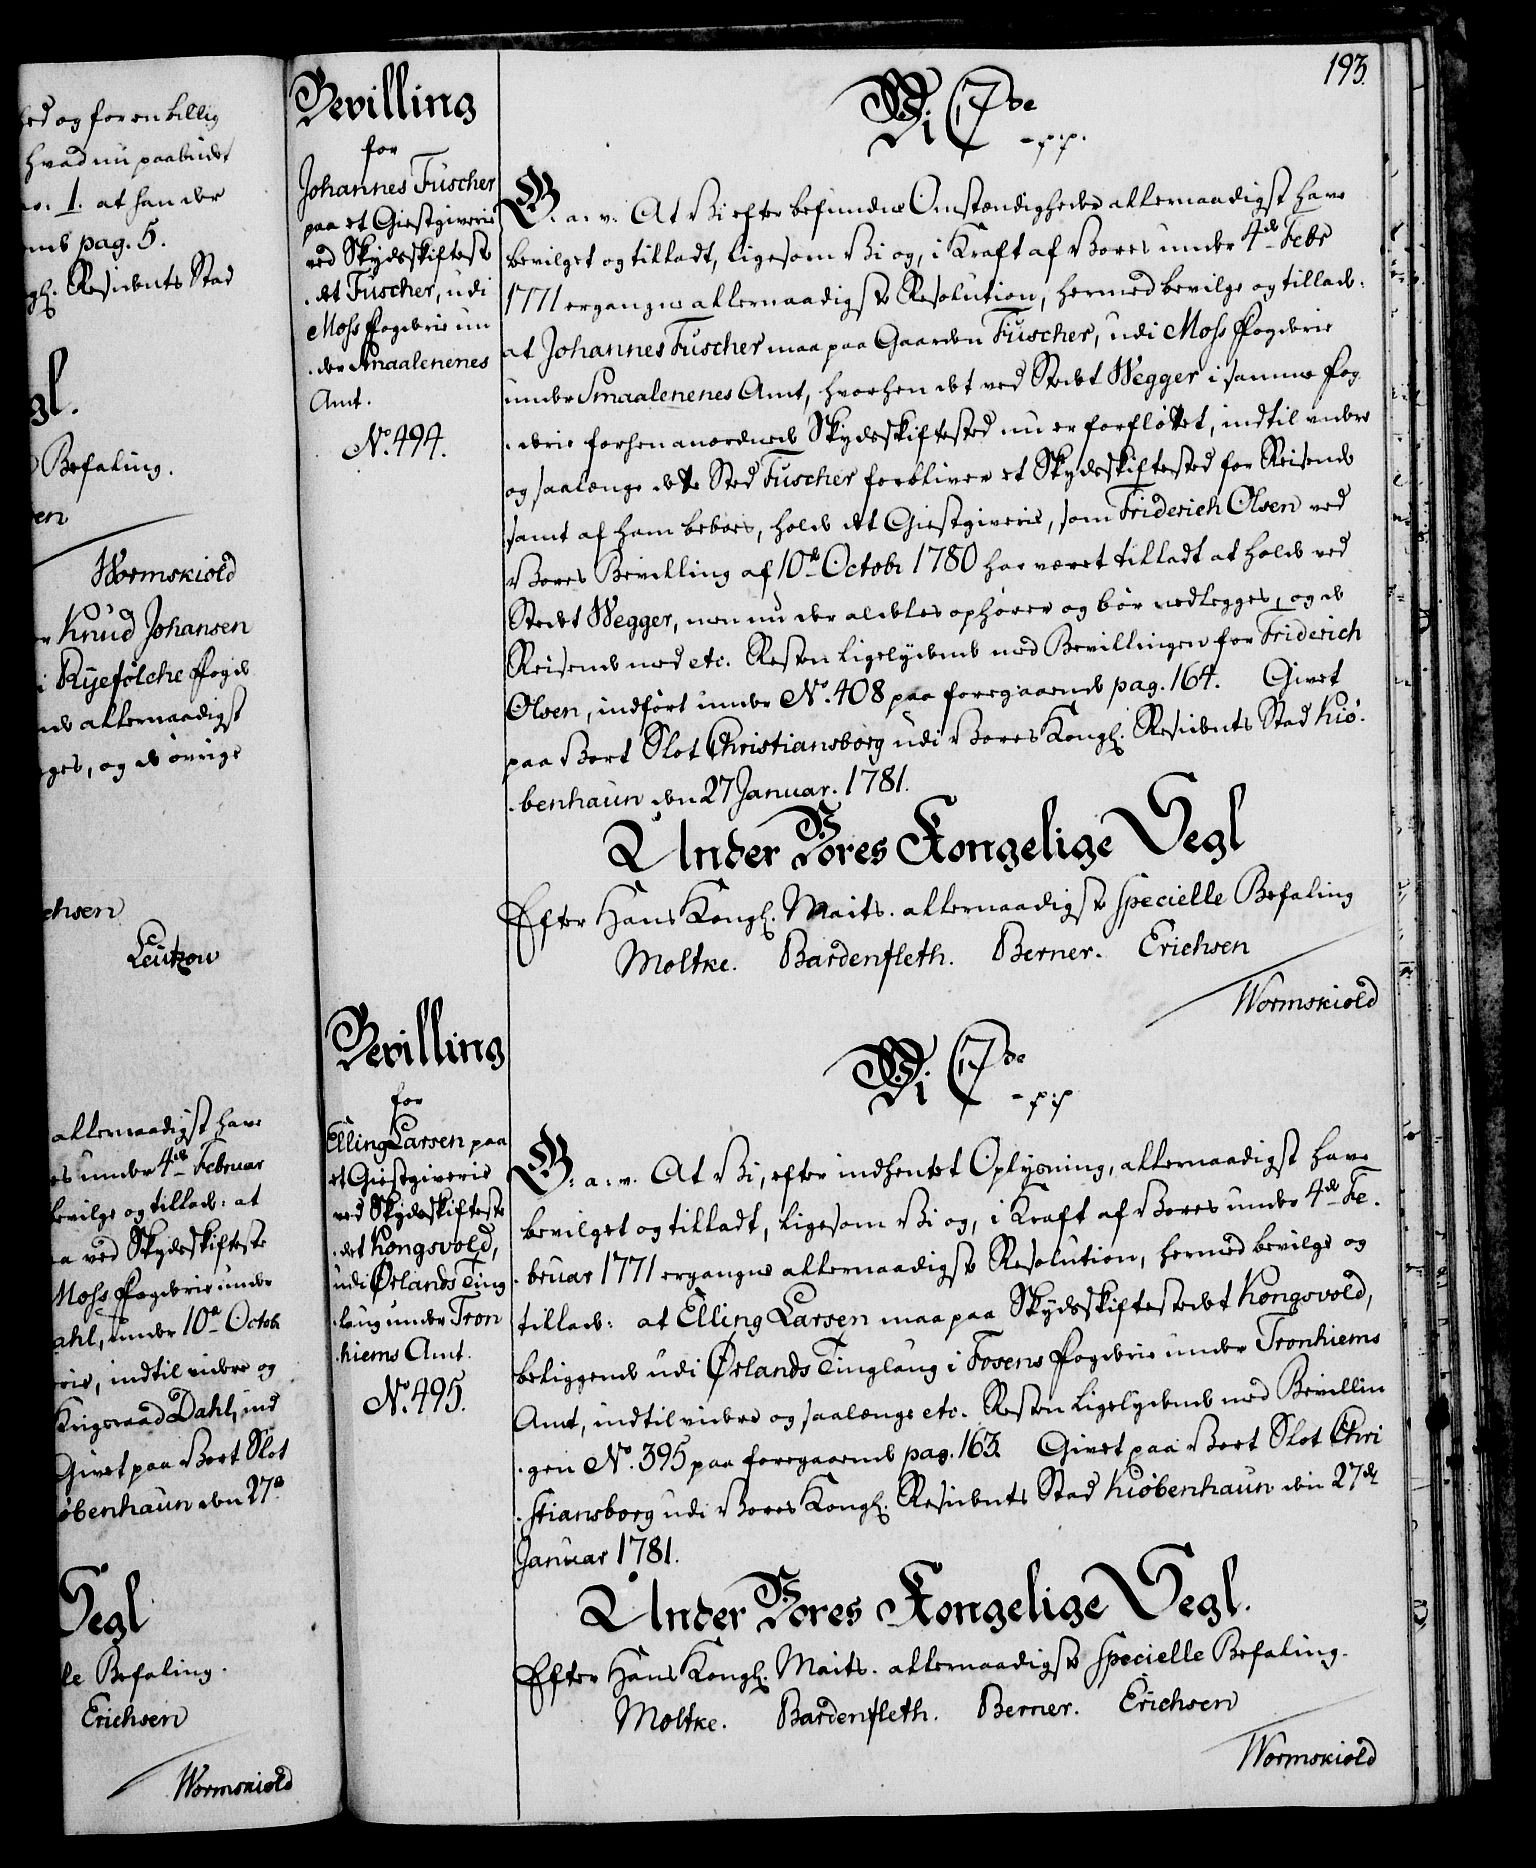 193.
hed og for en billig
hvad nu paabudet
No. 1. at han der
ende pag. 5.
gl. Residents Stad
gl.
Befaling.
sen
Wormskiold
Knud Johansen
i Ryefölche Fogd
nde allernaadigst
ges, og de övrige
chsen
Leützow
allernaadigst have
es under 4de Februar
bevilge og tillade: at
a ved Skydsskifteste
Moss Fogderie under
ahl, under 10de Octobr
rie, indtil videre og
Krigsraad Dahl, ind
Givet paa Vort Slot
øbenhaun den 27de
Segl
le Befaling.
Erichsen
Wormskiold
Bevilling
for
Johannes Fuscher
paa et Giestgiverie
ved Skydsskifteste
det Fuscher, udi
Moss Fogderie un
der Smaalenenes
Amt.
No. 494.
Vi C 7de
- p. p.
G. a. v. At Vi efter befundne Omstændigheder allernaadigst have
bevilget og tilladt, ligesom Vi og, i Kraft af Vores under 4de Febr
1771 ergangne allernaadigste Resolution, hermed bevilge og tillade:
at Johannes Fuscher maa paa Gaarden Fuscher, udi Moss Fogderie
under Smaalenenes Amt, hvorhen det ved Stedet Wegger i samme Fog
derie forhen anordnede Skydsskiftested nu er forfløttet, indtil videre
og saalænge dette Sted Fuscher forbliver et Skydsskiftested for Reisende
samt af ham beboes, holde et Giestgiverie, som Friderich Olsen ved
Vores Bevilling af 10de Octobr 1780 har været tilladt at holde ved
Stedet Wegger, men nu der aldeles ophører og bør nedlegges, og de
Reisende med etc. Resten ligelydende med Bevillingen for Friderich
Olsen, indført under No. 408 paa foregaaende pag. 164. Givet
paa Vort Slot Christiansborg udi Vores Kongl. Residents Stad Kiø
benhaun den 27 Januar. 1781.
Under Vores Kongelige Segl
Efter Hans Kongl. Maits. allernaadigste specielle Befaling
Moltke. Bardenfleth. Berner. Erichsen
Wormskiold
Bevilling
for
Elling Larsen paa
et Giestgiverie
ved Skydsskifteste
det Kongsvold,
udi Ørlands Ting
laug under Tron
hiems Amt.
No. 495.
Vi C 7de
- p. p
G. a. v. At Vi, efter indhentet Oplysning, allernaadigst have
bevilget og tilladt, ligesom Vi og, i Kraft af Vores under 4de Fe
bruar 1771 ergangne allernaadigste Resolution, hermed bevilge og
tillade: at Elling Larsen maa paa Skydsskiftestedet Kongsvold,
beliggende udi Ørlands Tinglaug i Fosens Fogderie under Tronhiems
Amt, indtil videre og saalænge etc. Resten ligelydende med Bevillin
gen No. 395 paa foregaaende pag. 163. Givet paa Vort Slot Chri
stiansborg udi Vores Kongl. Residents Stad Kiøbenhaun den 27de
Januar 1781.
Under Vores Kongelige Segl.
Efter Hans Kongl. Maits. allernaadigste specielle Befaling.
Moltke. Bardenfleth. Berner. Erichsen
Wormskiold